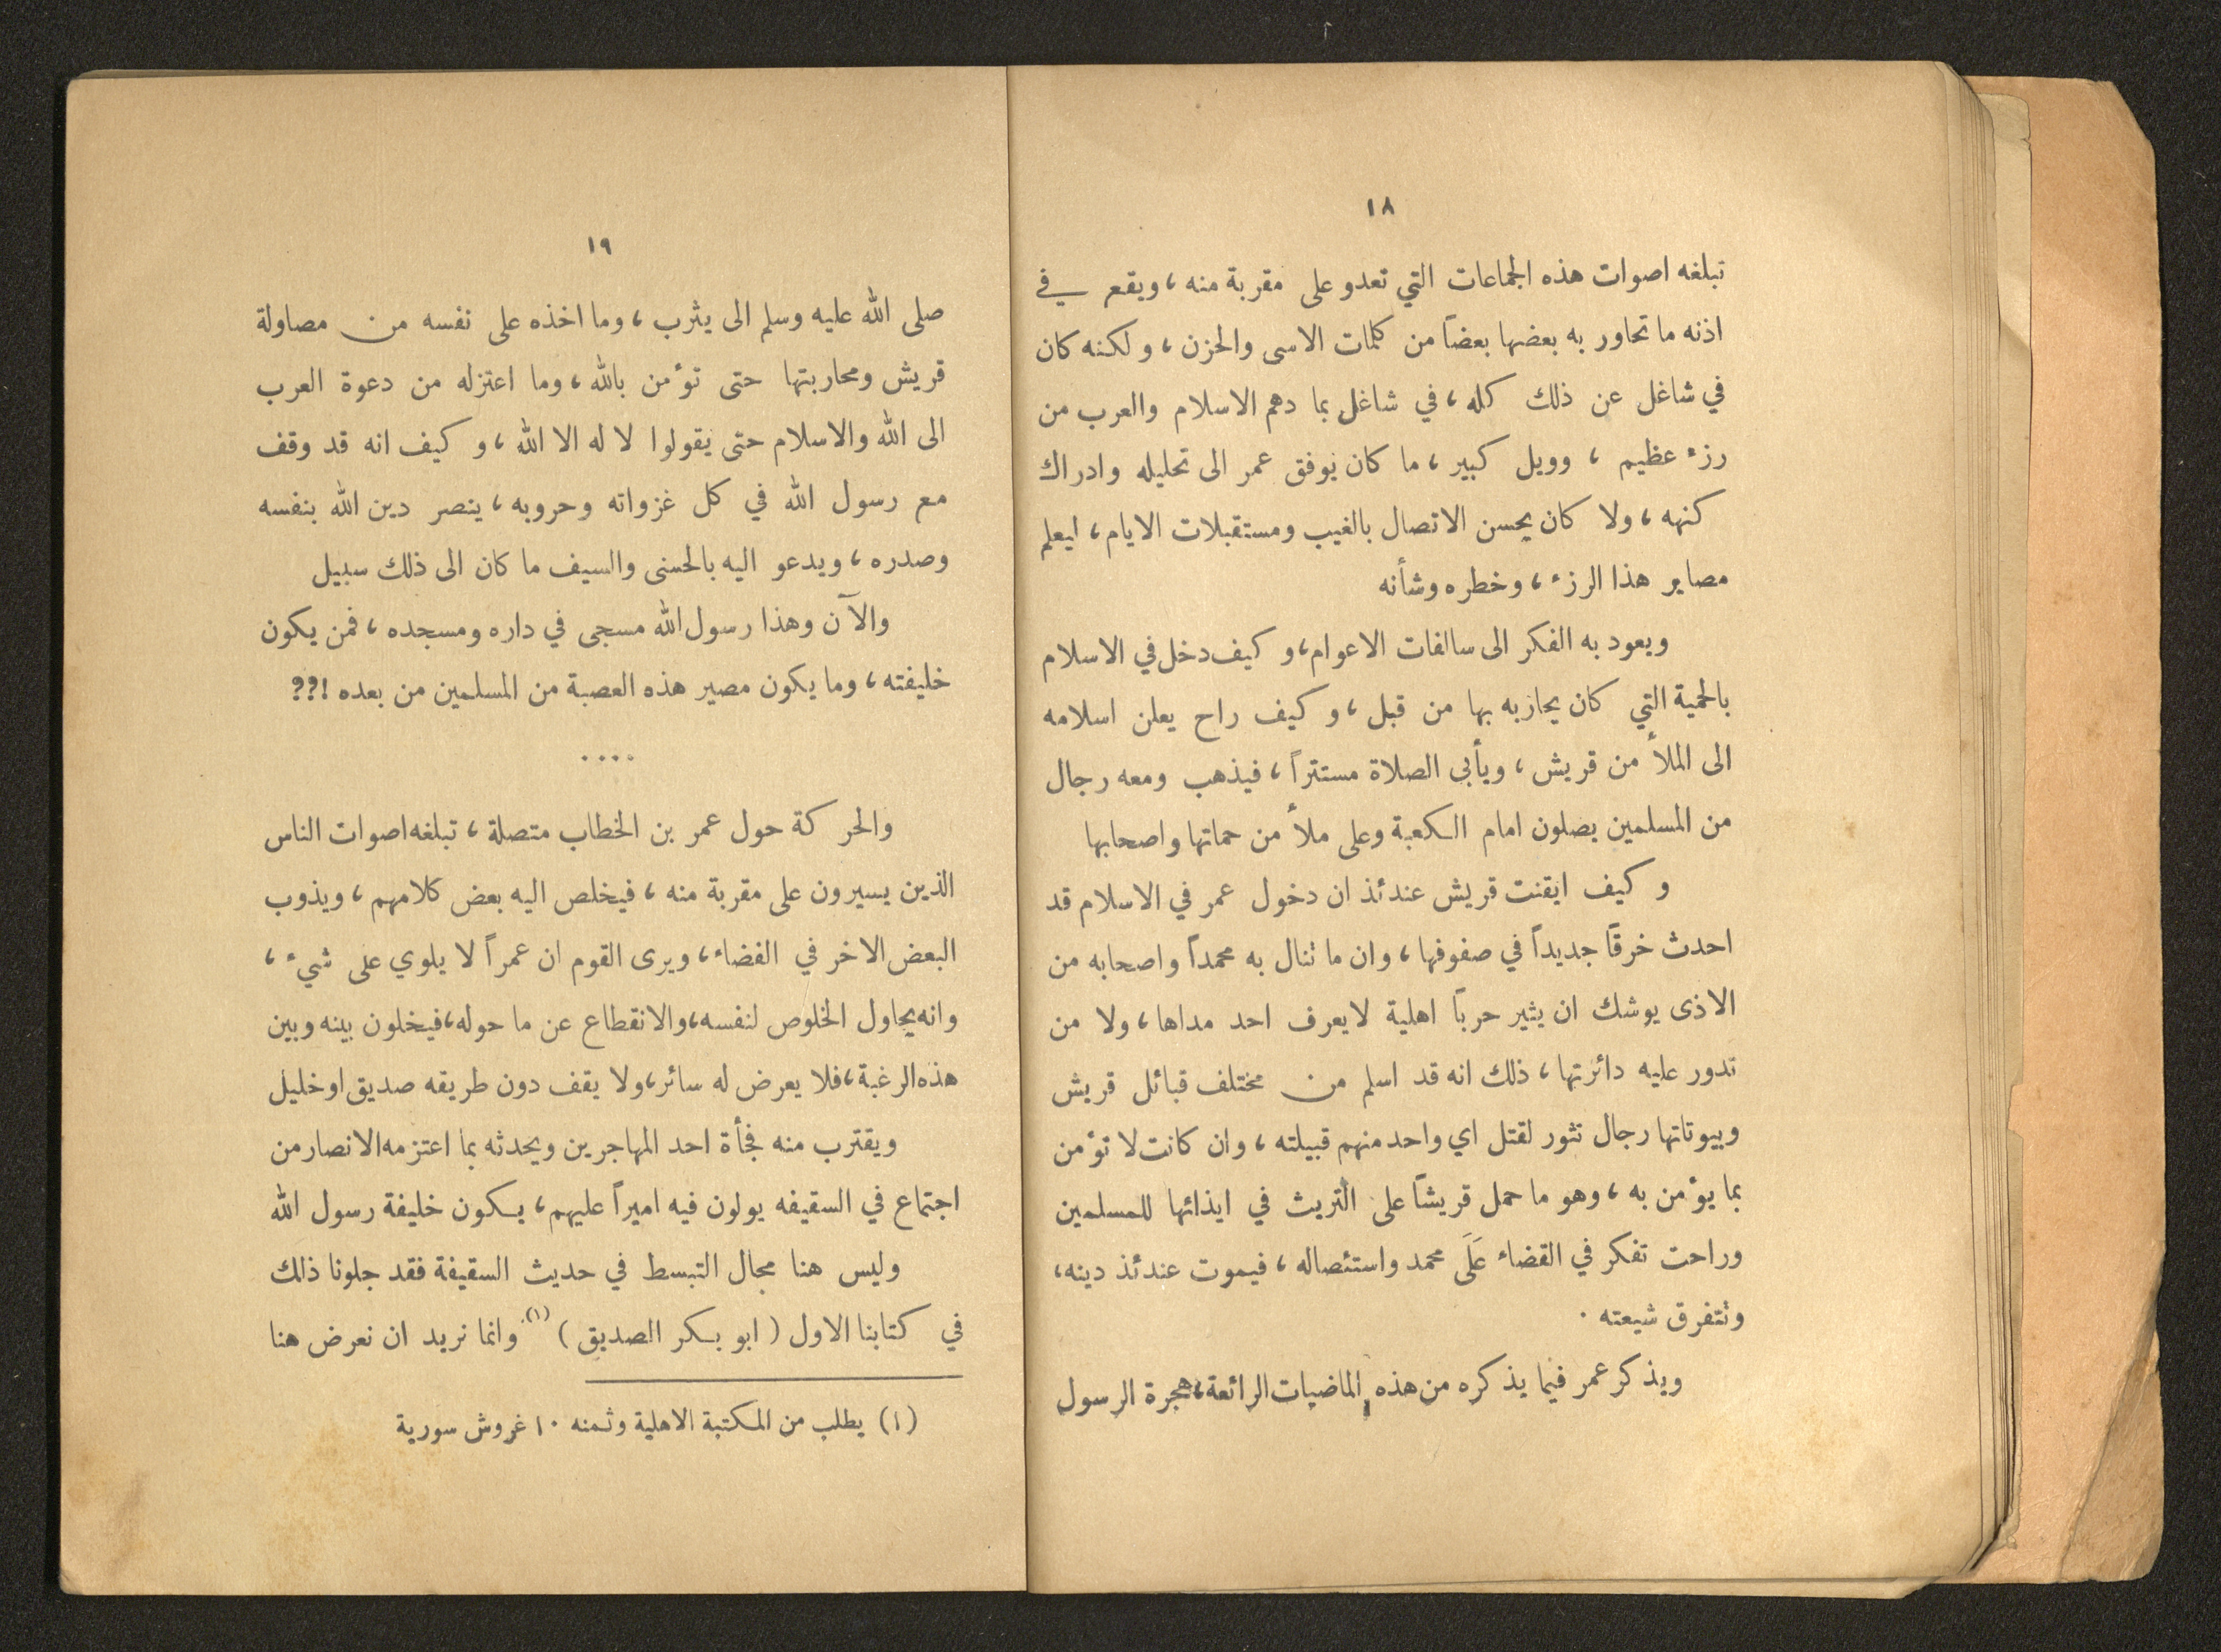 ١٨
تبلغه اصوات هذه الجماعات التي تعدو على مقربة منه ، ويقع في
اذنه ما تحاور به بعضها بعضاً من كلمات الاسى والحزن ، ولكنه كان
في شاغل عن ذلك كله ، في شاغل بما دهم الاسلام والعرب من
رزء عظيم ، وويل كبير ، ما كان يوفق عمر الى تحليله وادراك
كنهه ، ولا كان يحسن الاتصال بالغيب ومستقبلات الايام ، ليعلم
مصاير هذا الرزء ، وخطره وشأنه
ويعود به الفكر الى سالفات الاعوام ، وكيف دخل في الاسلام
بالحمية التي كان يحاربه بها من قبل ، وكيف راح يعلن اسلامه
الى الملأ من قريش ، ويأبى الصلاة مستتراً ، فيذهب ومعه رجال
من المسلمين يصلون امام الكعبة وعلى ملأ من حماتها واصحابها
وكيف ايقنت قريش عندئذ ان دخول عمر في الاسلام قد
احدث خرقاً جديداً في صفوفها ، وان ما تنال به محمداً واصحابه من
الاذى يوشك ان يثير حرباً اهلية لا يعرف احد مداها ، ولا من
تدور عليه دائرتها ، ذلك انه قد اسلم من مختلف قبائل قريش
وبيوتاتها رجال تثور لقتل اي واحد منهم قبيلته ، وان كانت لا تؤمن
بما يؤمن به ، وهو ما حمل قريشاً على التريث في ايذائها للمسلمين
وراحت تفكر في القضاء عَلَى محمد واستئصاله ، فيموت عندئذ دينه ،
وتتفرق شيعته .
ويذكر عمر فيما يذكره من هذه الماضيات الرائعة ، هجرة الرسول
١٩
صلى الله عليه وسلم الى يثرب ، وما اخذه على نفسه من مصاولة
قريش ومحاربتها حتى تؤمن بالله ، وما اعتزله من دعوة العرب
الى الله والاسلام حتى يقولوا لا له الا الله ، وكيف انه قد وقف
مع رسول الله في كل غزواته وحروبه ، ينصر دين الله بنفسه
وصدره ، ويدعو اليه بالحسنى والسيف ما كان الى ذلك سبيل
والآن وهذا رسول الله مسجى في داره ومسجده ، فمن يكون
خليفته ، وما يكون مصير هذه العصبة من المسلمين من بعده !؟؟
....
والحركة حول عمر بن الخطاب متصلة ، تبلغه اصوات الناس
الذين يسيرون على مقربة منه ، فيخلص اليه بعض كلامهم ، ويذوب
البعض الاخر في الفضاء ، ويرى القوم ان عمراً لا يلوي على شيء ،
وانه يحاول الخلوص لنفسه ، والانقطاع عن ما حوله ، فيخلون بينه وبين
هذه الرغبة ، فلا يعرض له سائر ، ولا يقف دون طريقه صديق او خليل
ويقترب منه فجأة احد المهاجرين ويحدثه بما اعتزمه الانصار من
اجتماع في السقيفه يولون فيه اميراً عليهم ، يكون خليفة رسول الله
وليس هنا مجال التبسط في حديث السقيفة فقد جلونا ذلك
في كتابنا الاول ( ابو بكر الصديق ) (١) وانما نريد ان نعرض هنا
(١) يطلب من المكتبة الاهلية وثمنه ١٠ غروش سورية